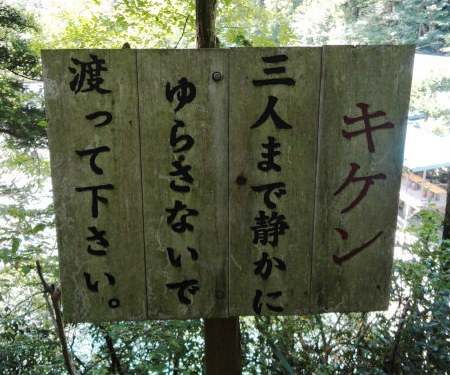 キケン
三人まで静かに
ゆらさないで
渡って下さい。